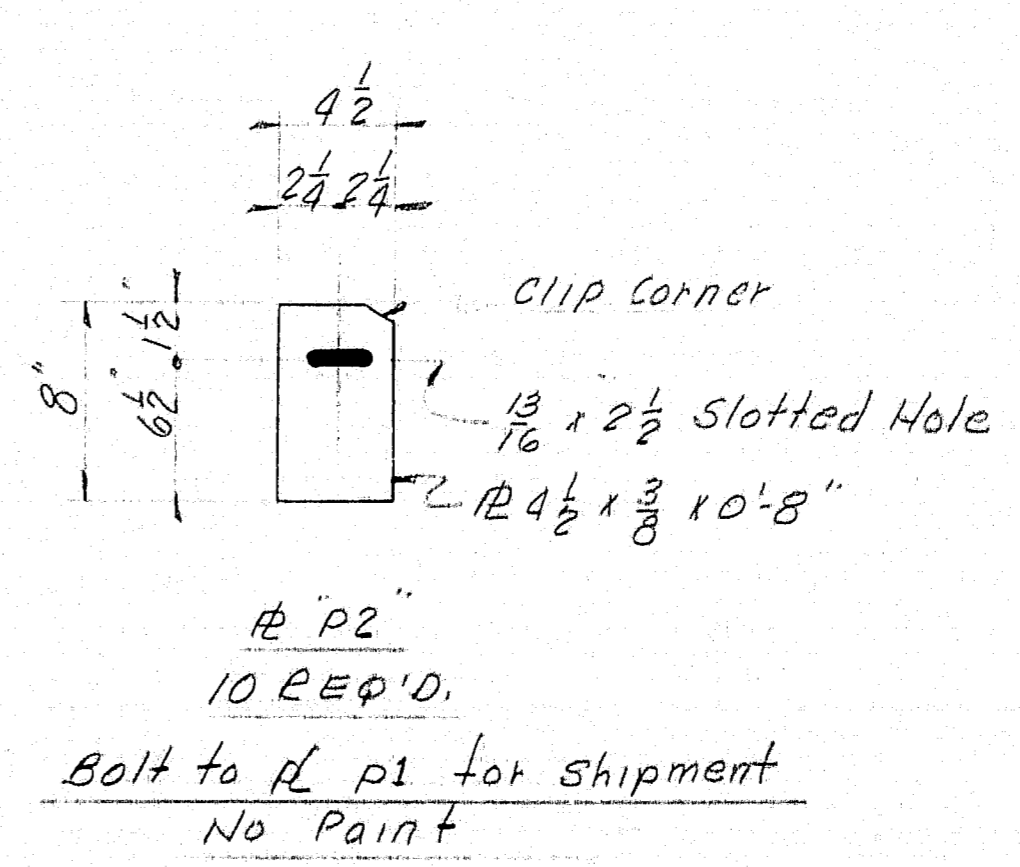 4 1/2
2 1/4 2 1/4
Clip Corner
8"
6 1/2" 1 1/2"
13/16 x 2 1/2 Slotted Hole
PL 4 1/2 x 3/8 x 0'-8"
PL "P2"
10 REQ'D.
Bolt to PL P1 for Shipment
No Paint